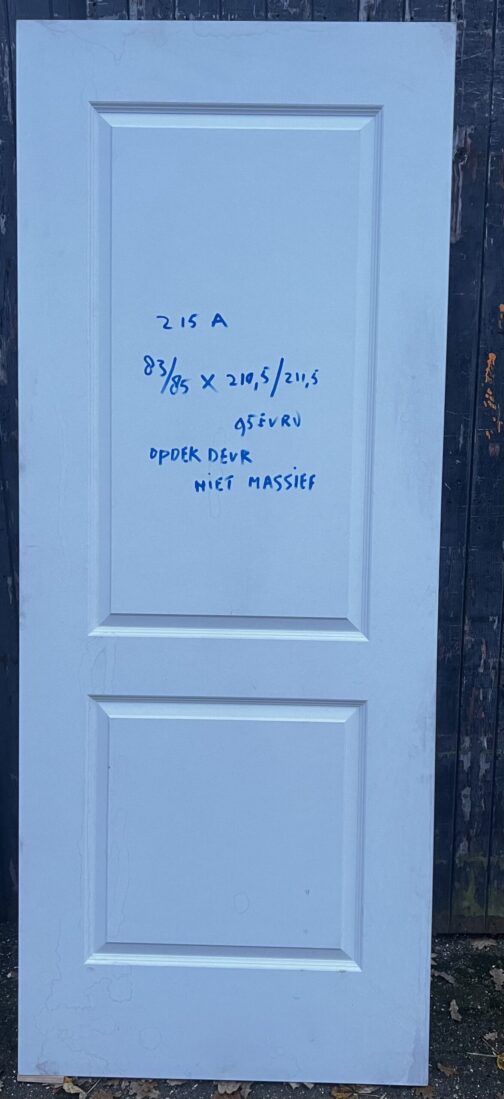 215 A
83/85 X 210,5/211,5
95 EVRU
OPDEK DEUR
NIET MASSIEF